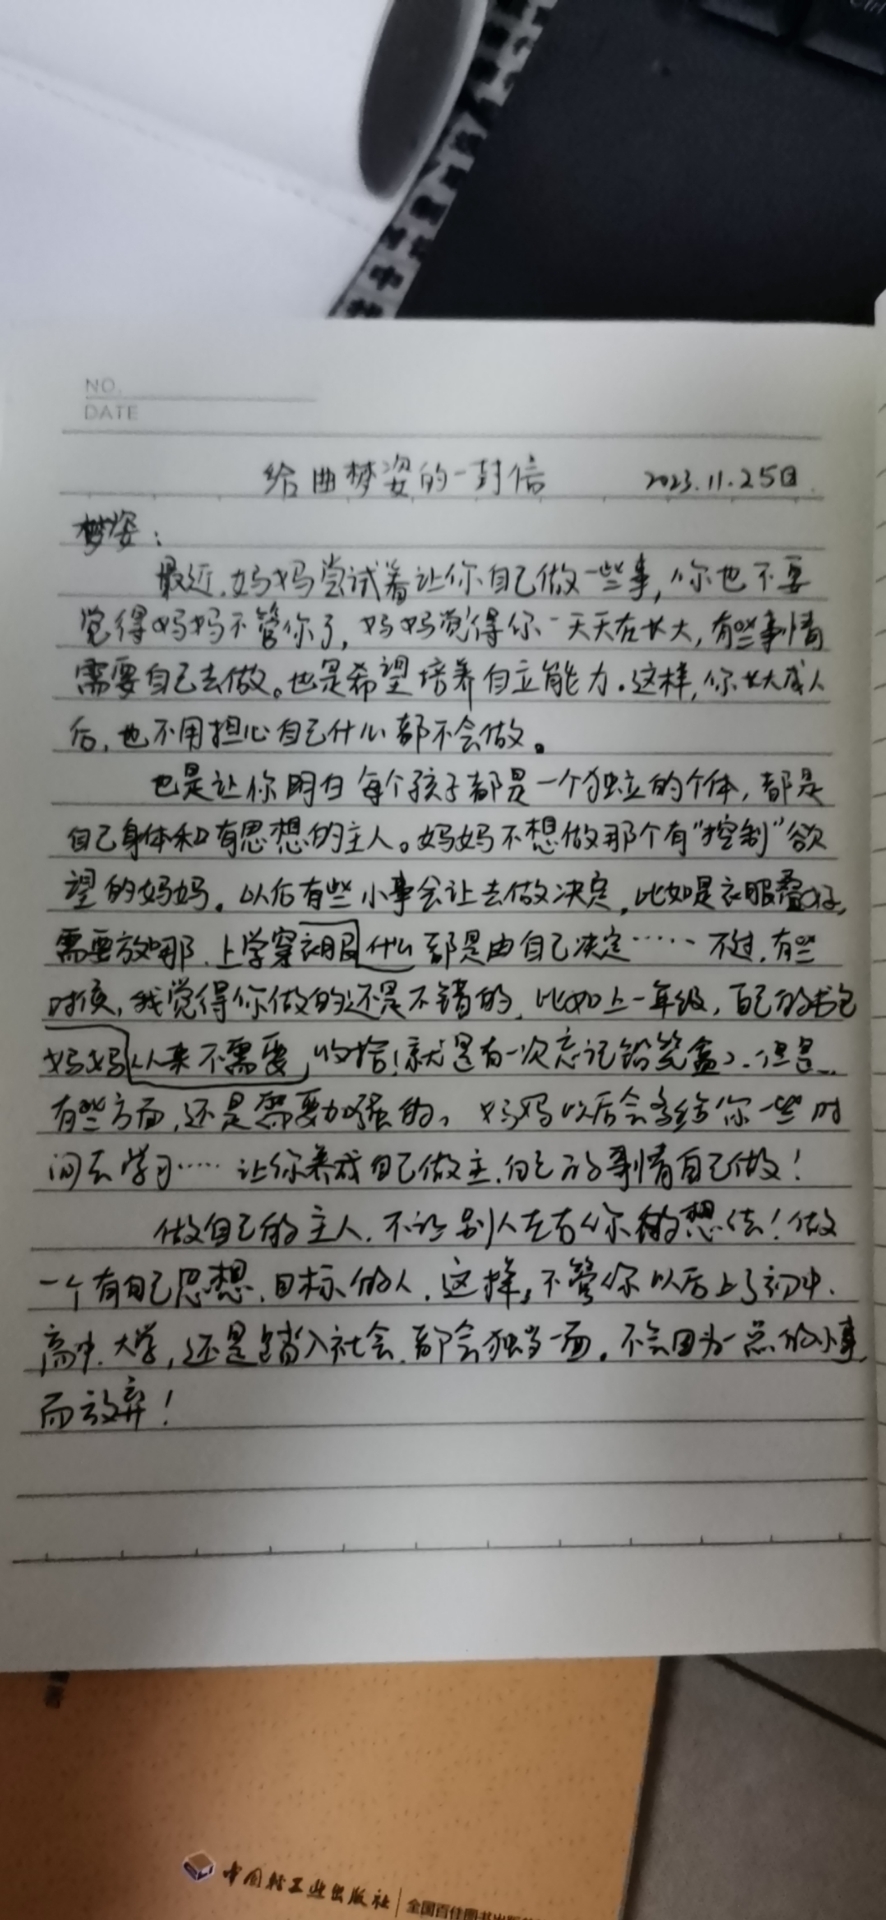 Ctrl
NO.
DATE
给曲梦姿的一封信 2023.11.25日
梦姿：
最近，妈妈尝试着让你自己做一些事，你也不要
觉得妈妈不管你了，妈妈觉得你一天天在长大，有些事情
需要自己去做。也是希望培养自立能力。这样，你长大成人
后，也不用担心自己什么都不会做。
也是让你明白每个孩子都是一个独立的个体，都是
自己身体和有思想的主人。妈妈不想做那个有“控制”欲
望的妈妈。以后有些小事会让去做决定，比如是衣服叠好，
需要放哪那、上学穿衣服什么都是由自己决定……不过，有些
时候，我觉得你做的还是不错的，比如上一年级，自己的书包
妈妈从来不需要收拾！就是有一次忘记铅笔盒了、但是
有些方面，还是需要加强的，妈妈以后会多给你一些时
间去学习……让你养成自己做主，自己的事情自己做！
做自己的主人，不让别人左右你的想法！做
一个有自己思想、目标的人，这样，不管你以后上了初中、
高中、大学，还是踏入社会，都会独当一面。不会因为一点的小事，
而放弃！
中国轻工业出版社 全国百佳图书出版